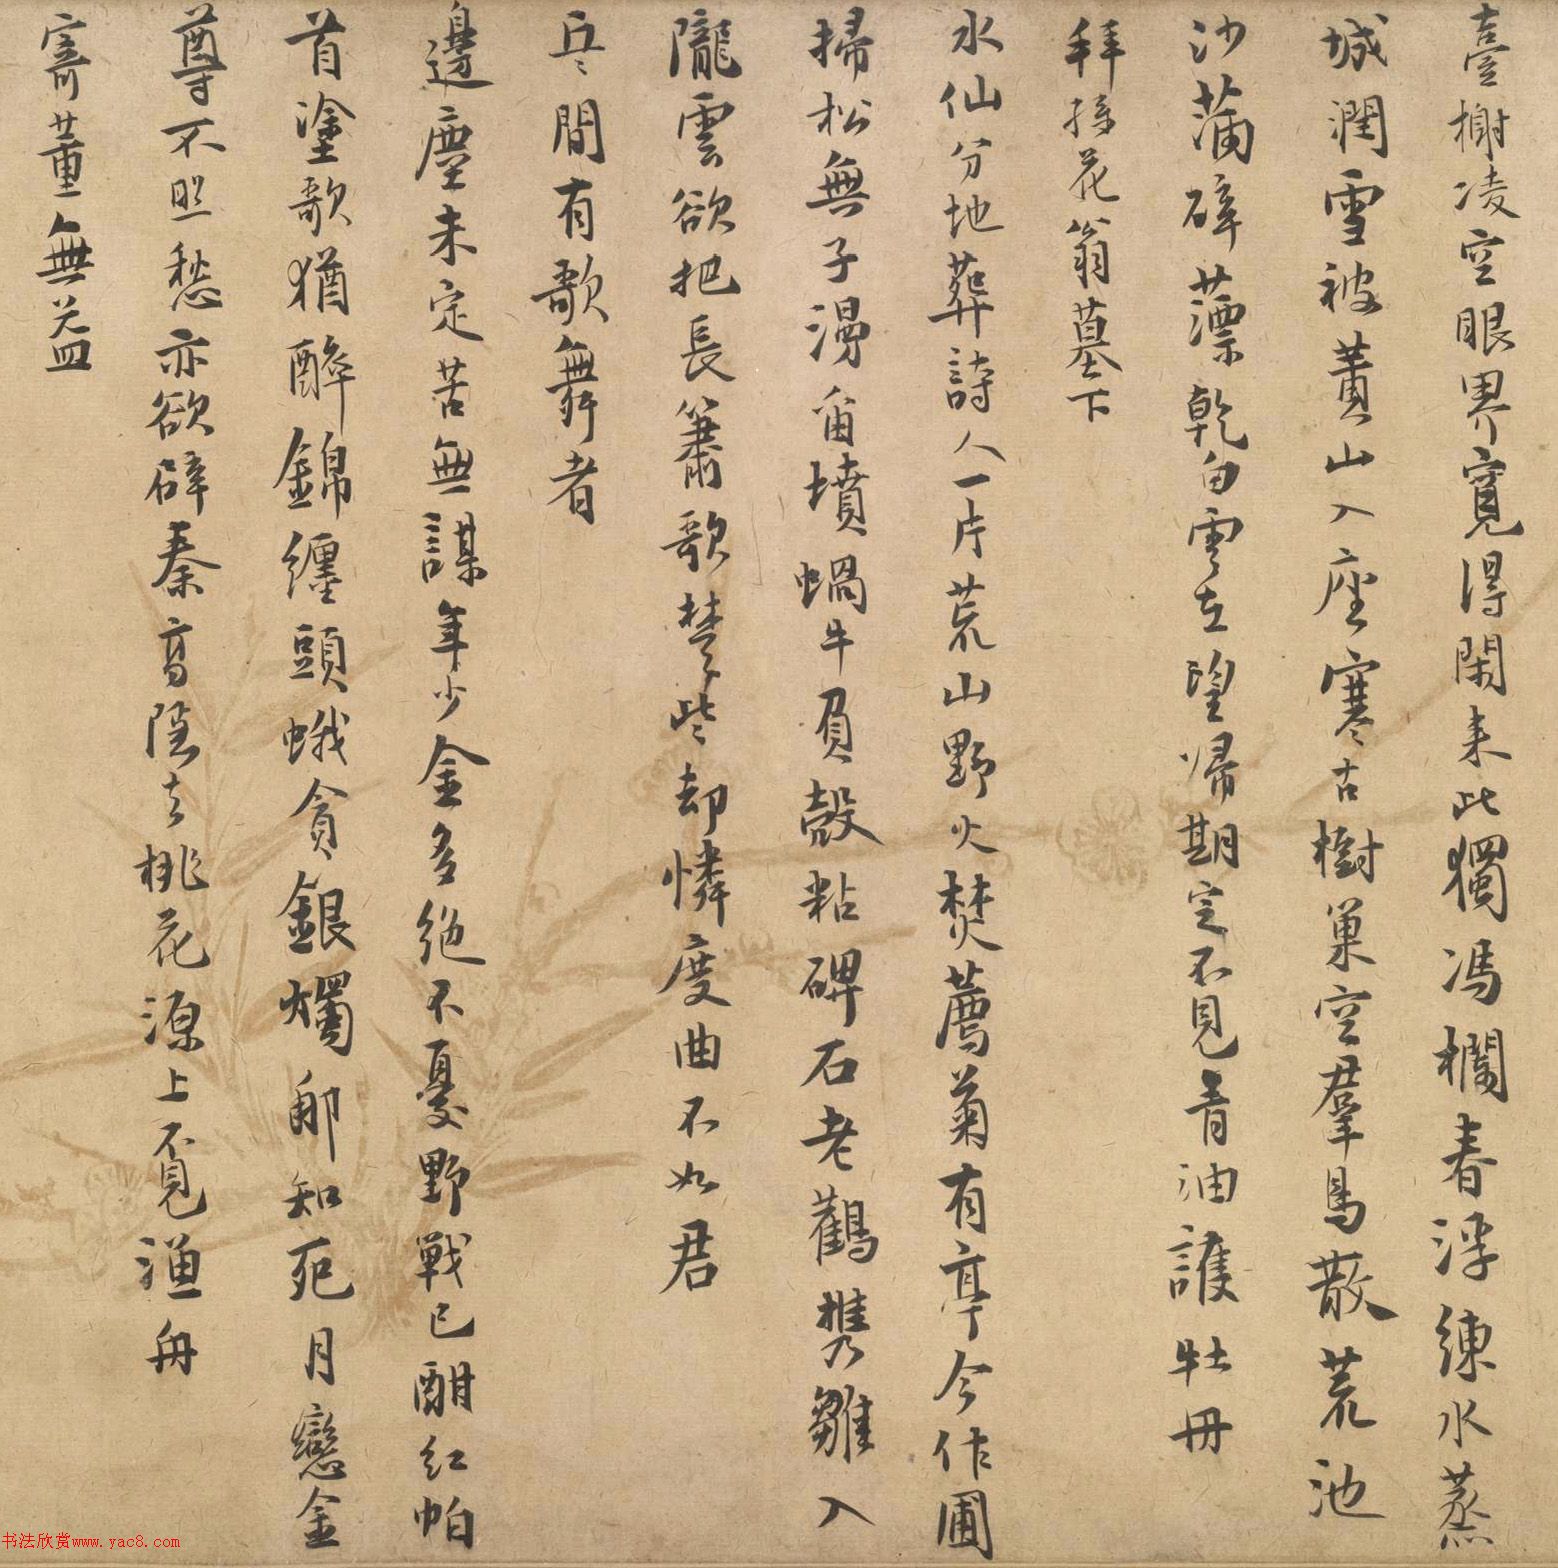 臺榭凌空眼界寬得閑来此獨馮欄春浮練水蒸
城潤雪被黄山入座寒古樹巢空羣鳥散荒池
沙蒲碎藻乾白雲在望歸期定不見青油護牡丹
拜孫花翁墓下
水仙分地葬詩人一片荒山野火焚薦菊有亭今作圃
掃松無子漫留墳蝸牛負殼粘碑石老鸛攜雛入
隴雲欲把長簫歌楚些却憐度曲不如君
兵間有歌舞者
邊塵未定苦無謀年少金多絶不憂野戰已酣紅帕
首塗歌猶醉錦纏頭蛾貪銀燭那知死月戀金
尊不照愁亦欲辟秦高隱去桃花源上不覓漁舟
寄董無益
书法欣赏www.yac8.com